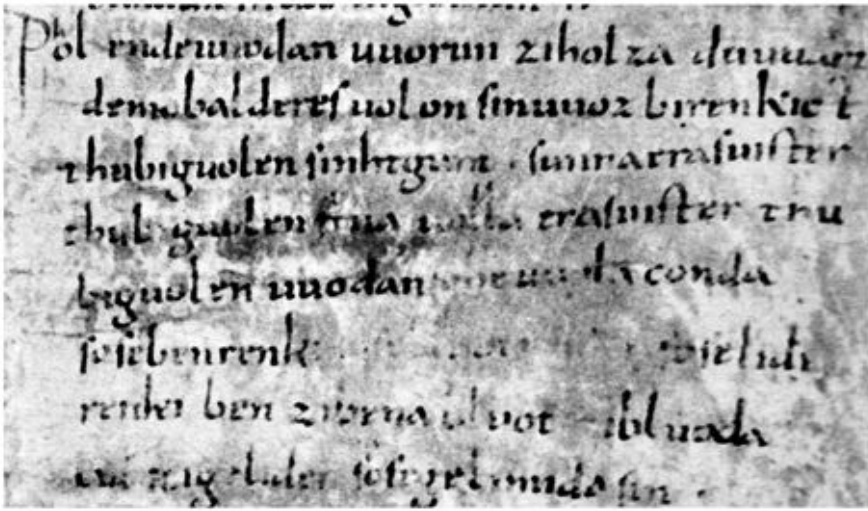 Phol ende uuodan uuorun zi holza du uuart
demo balderes uolon sin uuoz birenkict
thu biguolen sinhtgunt . sunna era suister
thu biguolen friia uolla era suister thu
biguolen uuodan conda
sose benrenki sose lidi
renki ben zi bena bluot zi bluoda
lid zi geliden sose gelimida sin .